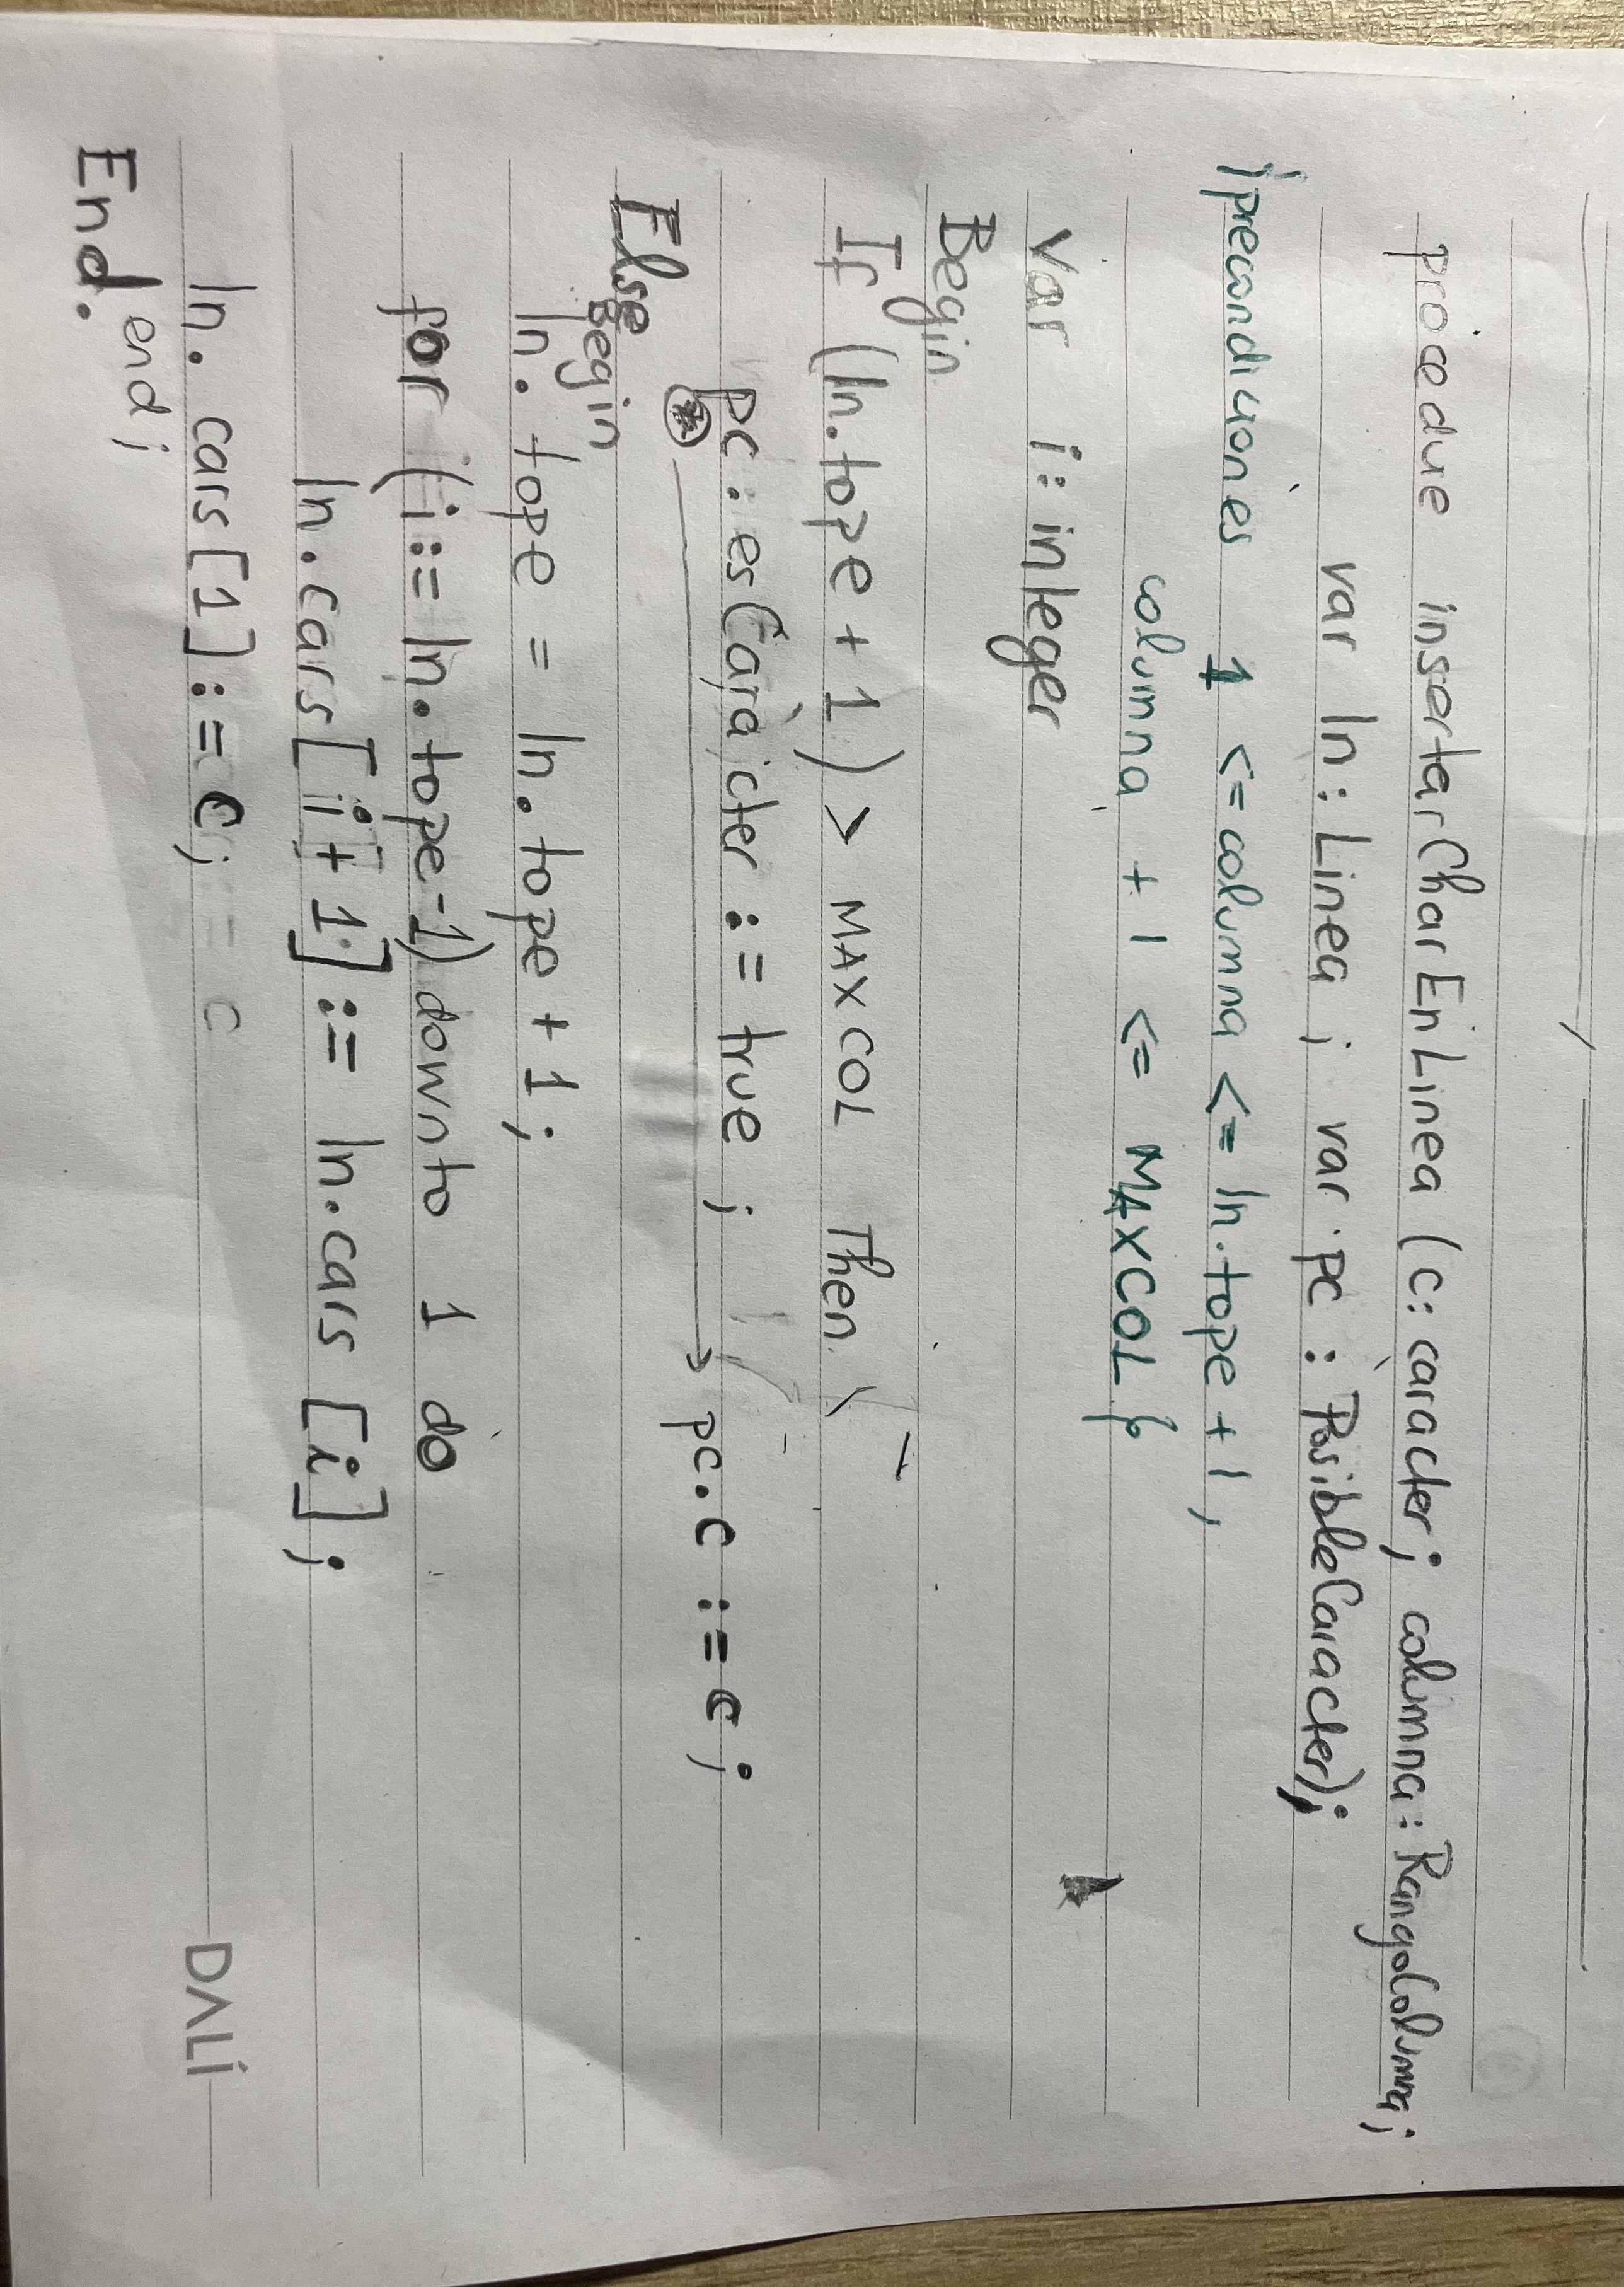 procedue insertarCharEnLinea (c: caracter; columna: RangoColumna;
var ln: Linea; var pc: PosibleCaracter);
{precondiciones 1 <= columna <= ln.tope + 1,
columna + 1 <= MAXCOL}
Var i: integer
Begin
If (ln.tope + 1) > MAXCOL Then
pc: esCaracter := true;
* → pc.c := c;
Else
Begin
ln. tope = ln. tope + 1;
for (i := ln. tope-1) downto 1 do
ln.cars[i+1] := ln.cars[i];
ln. cars[1] := c;
end;
End.
DALÍ